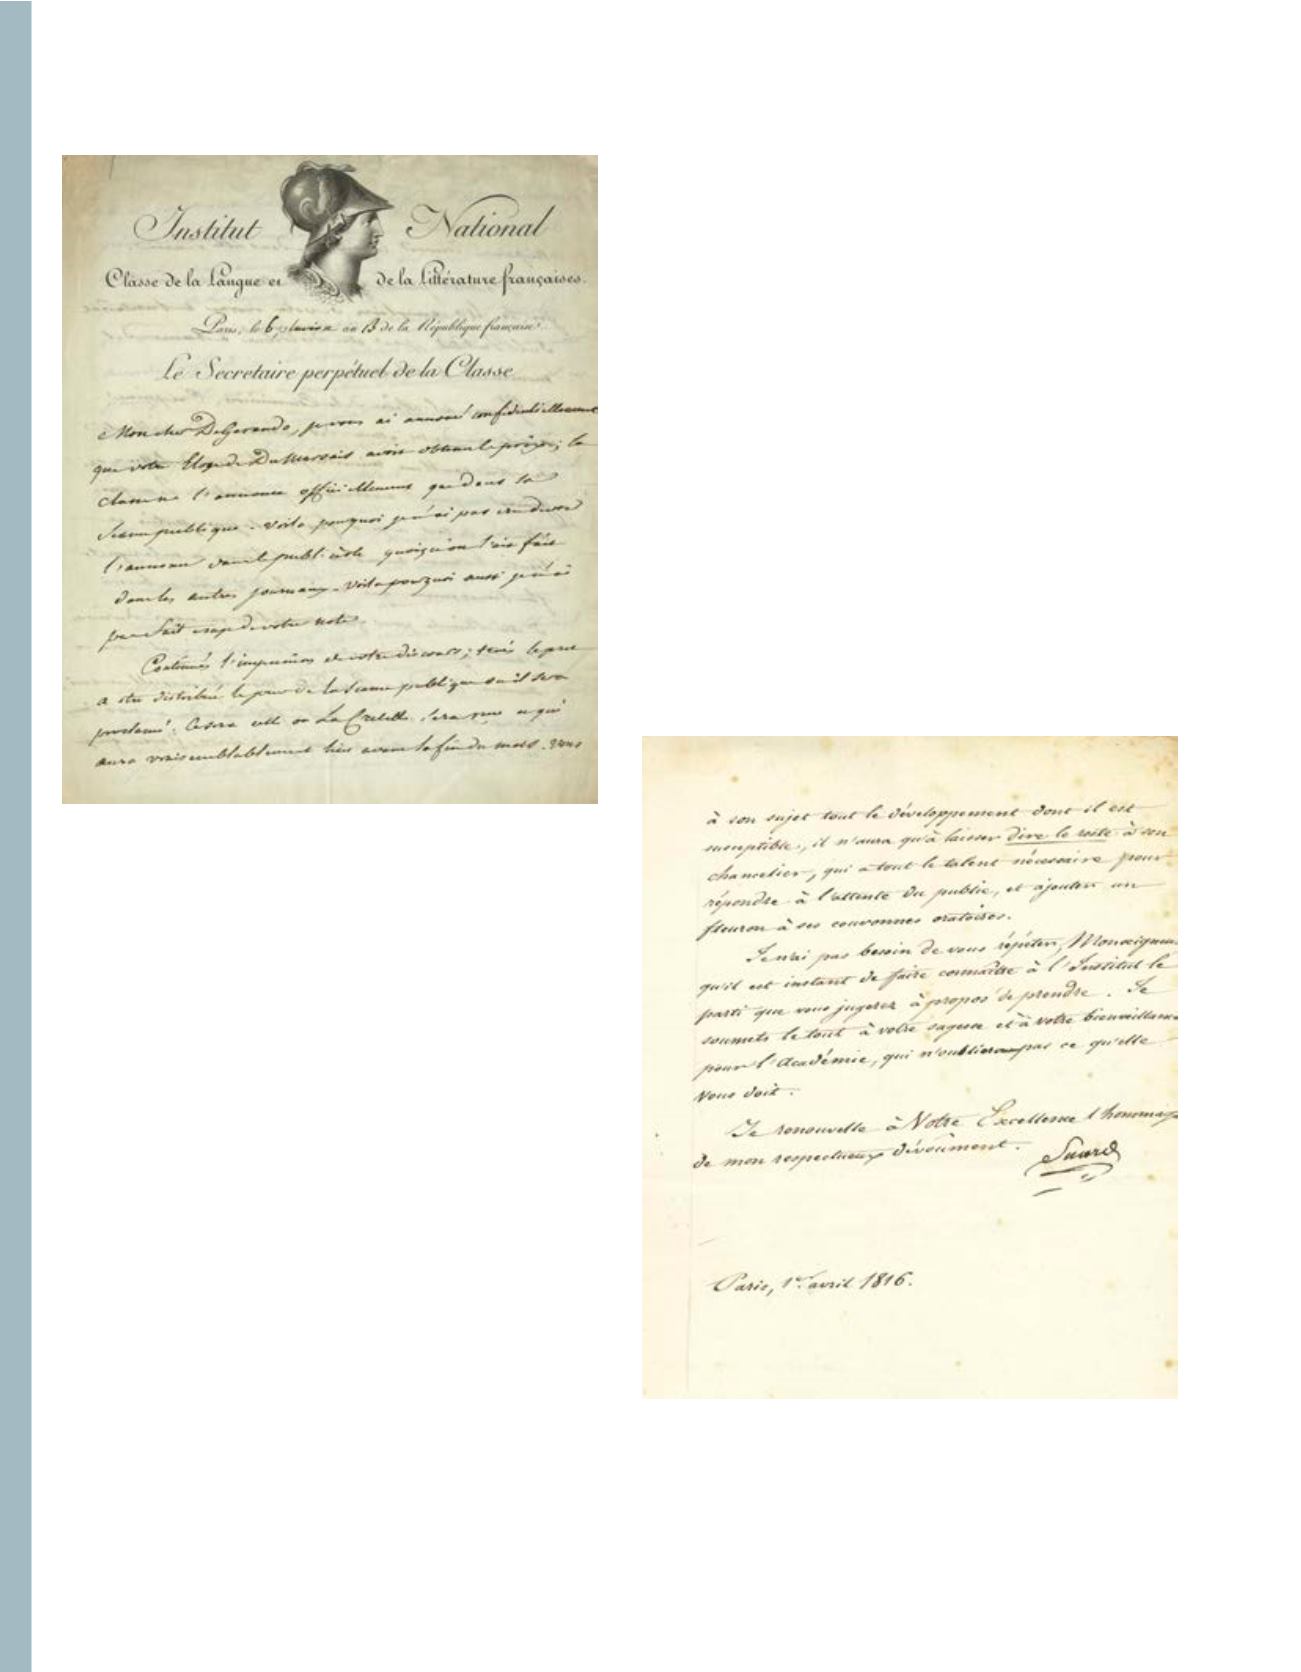 Institut National
Classe de la Langue et de la Littérature françaises.
Paris, le 6 pluviose an 13 de la République française.
Le Secretaire perpétuel de la Classe
Mon cher DeGerando, je vous ai annoncé confidentiellement
que votre Eloge de DuMarsais avoit obtenu le prix; la
classe ne l'annonce officiellement que dans sa
Seance publique. Voilà pourquoi je n'ai pas
l'annoncer dans le publiciste quoiqu'on l'ait fait
dans les autres journaux. Voilà pourquoi aussi je n'ai
pas fait usage de votre note.
Continués l'impression de votre discours;
a etre distribué le jour de la Seance publique où il sera
proclamé. Ce sera celle où La Cretelle sera reçu ce qui
aura vraisemblablement lieu avant la fin du mois. Vous
à son sujet tout le développement dont il est
susceptible, il n'aura qu'à laisser dire le reste à son
chancelier, qui a tout le talent nécessaire pour
répondre à l'attente du public, et ajouter un
fleuron à ses couronnes oratoires.
Je n'ai pas besoin de vous répéter, Monseigneur
qu'il est instant de faire connaître à l'Institut le
parti que vous jugerez à propos de prendre. Je
soumets le tout à votre sagesse et à votre bienveillance
pour l'Académie, qui n'oubliera pas ce qu'elle
vous doit.
Je renouvelle à Votre Excellence l'hommage
de mon respectueux dévoûment.
Suard
Paris, 1er avril 1816.